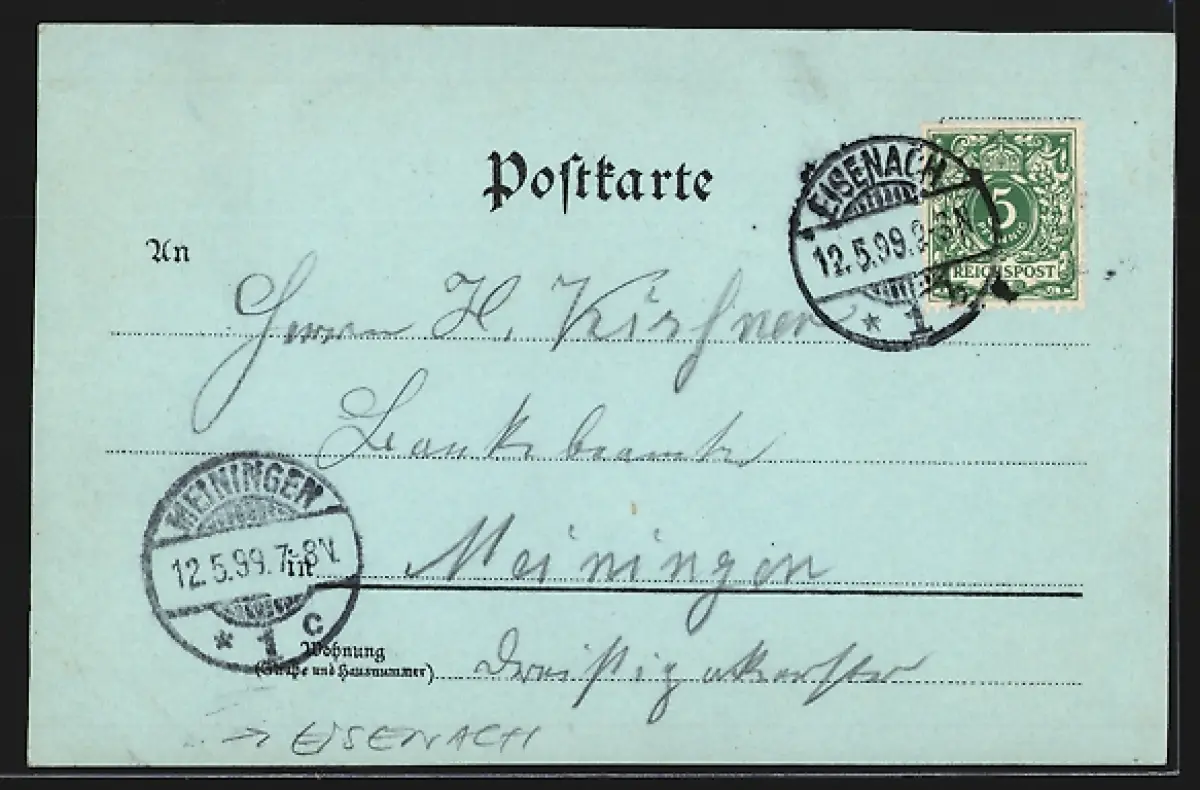 Postkarte
EISENACH
12.5.99.2-3N
* 1 b
5
PFENNIG
REICHSPOST
An
Herrn H. Kirchner
Bankbeamter
MEININGEN
12.5.99.7-8V.
* 1 c
in Meiningen
Wohnung
(Straße und Hausnummer)
→ EISENACH